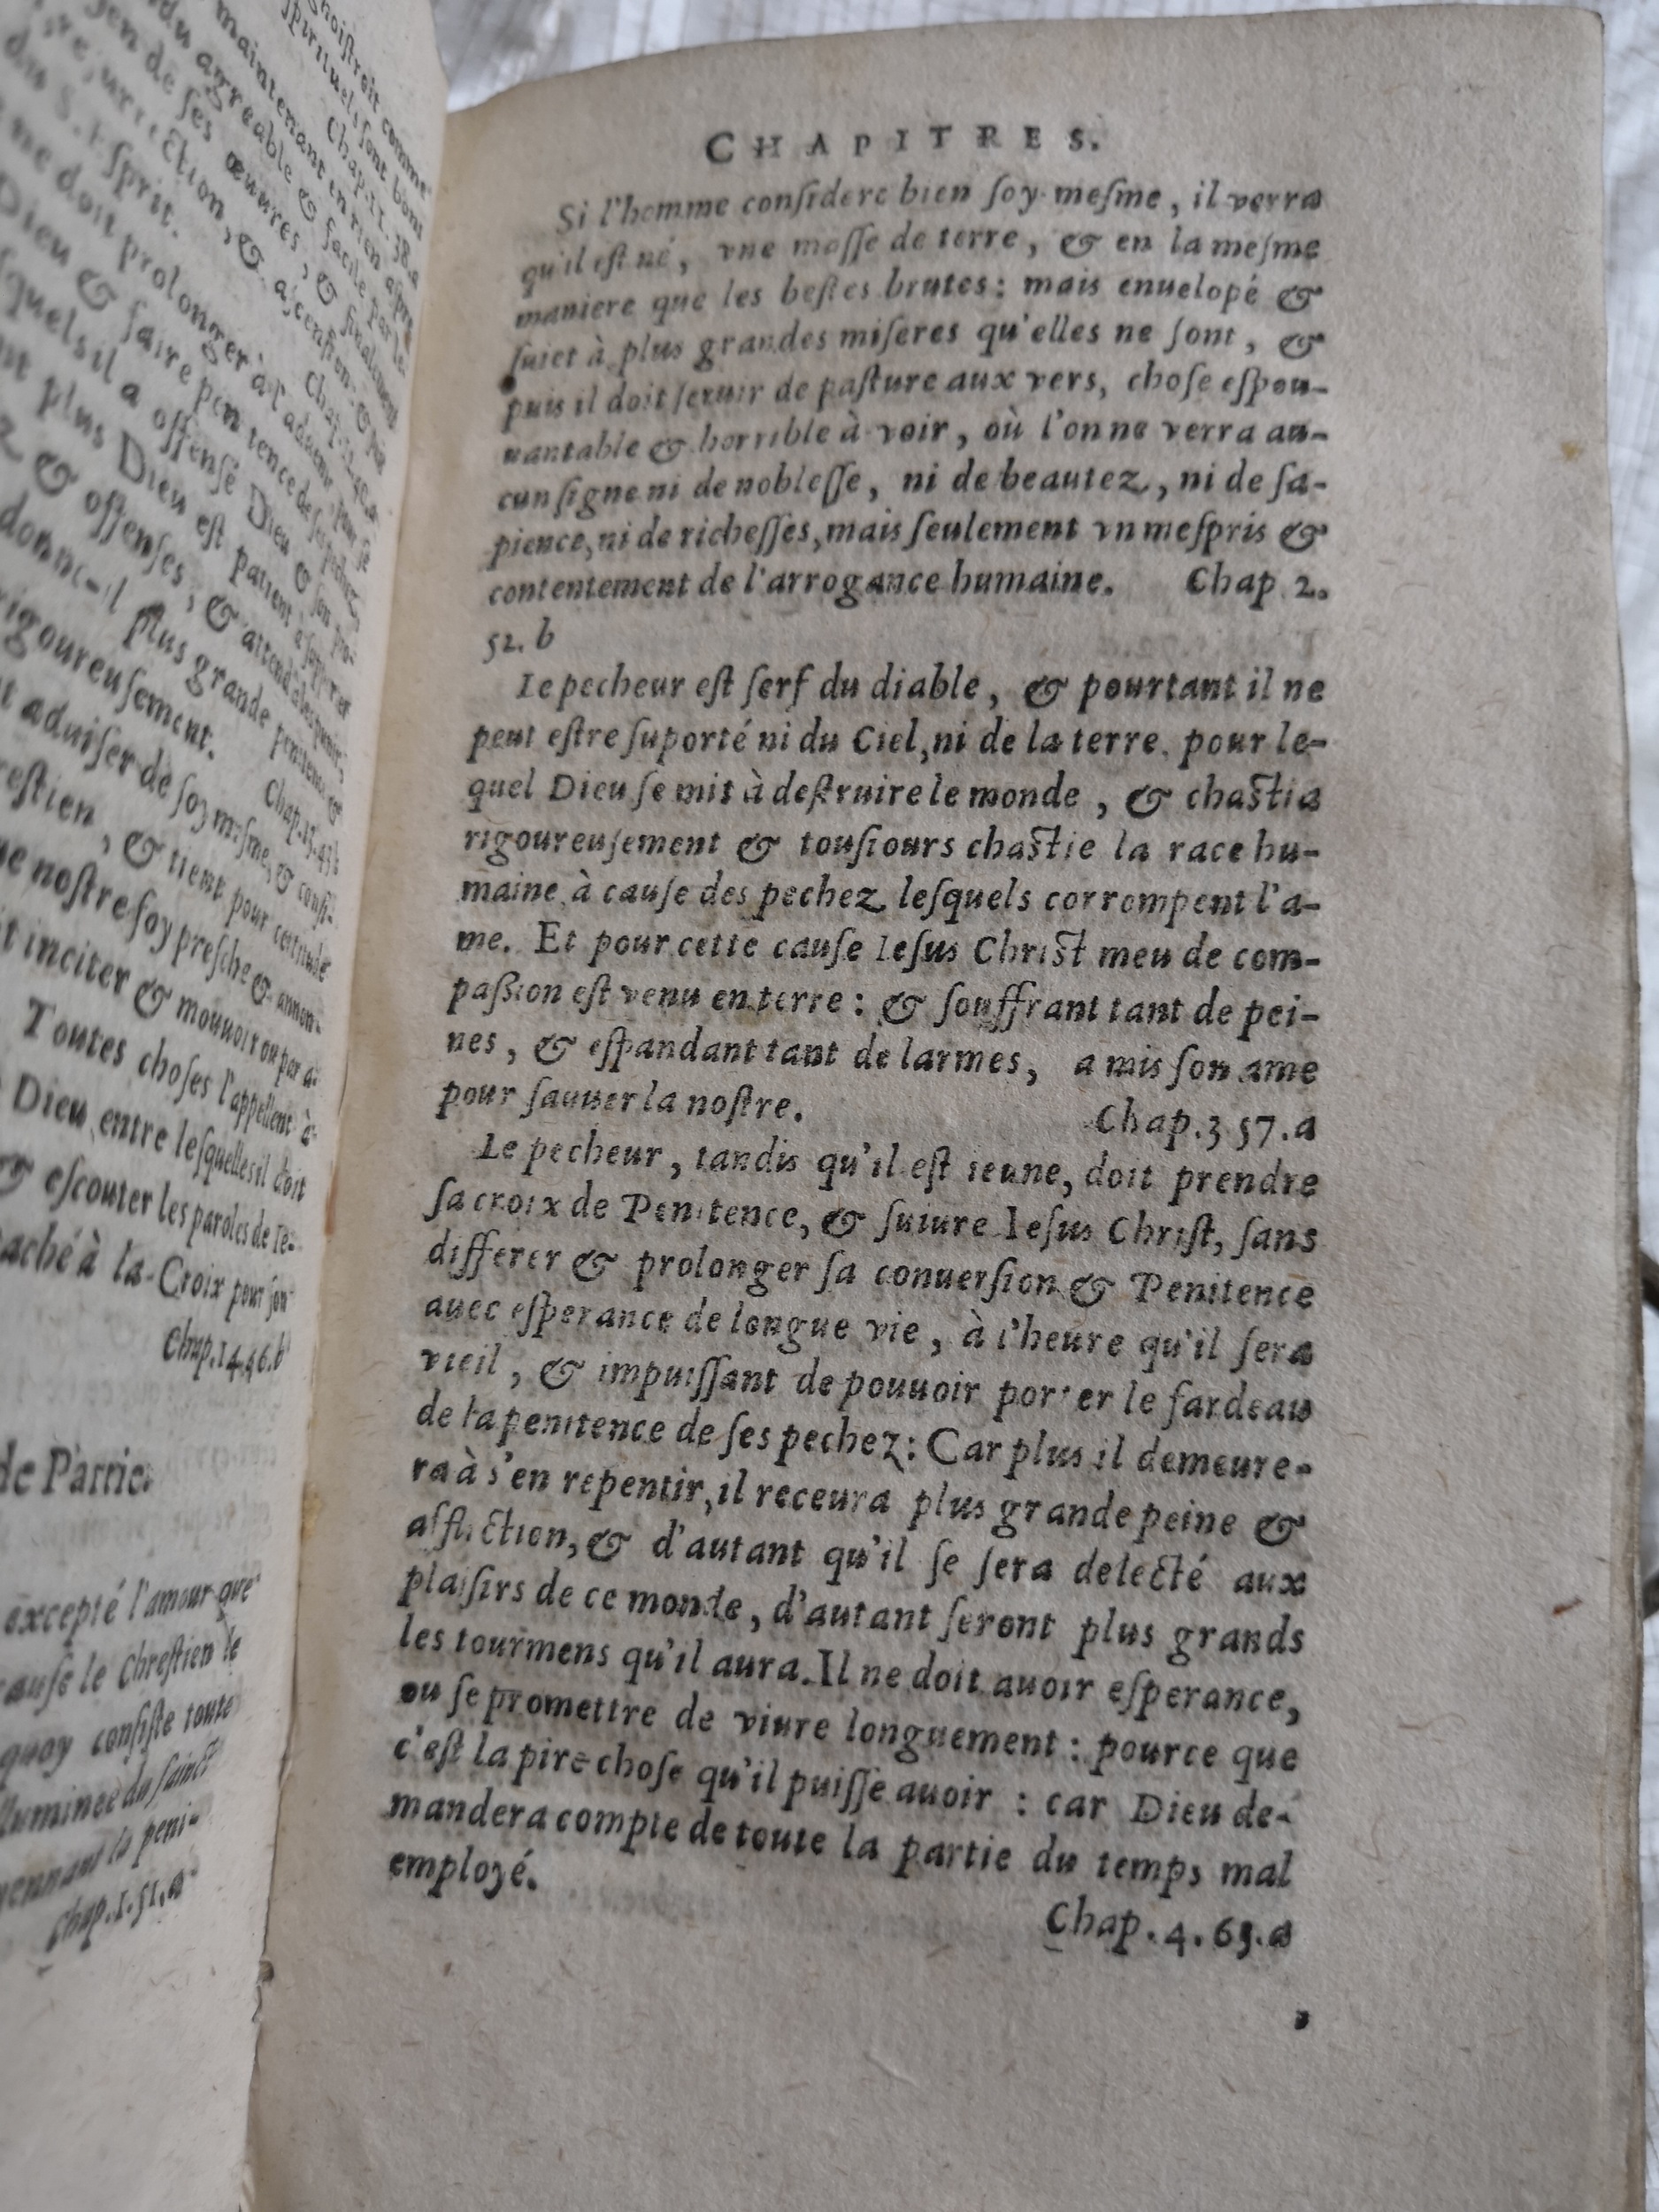 noiſtroit comme
ſpirituels ſont bons
Chap. 11. 38. a
maintenant en rien aſpre
du agreable & facile par le
gen de ſes œuures, & finalement
reſurrection, & aſcenſion, &
du S. Eſprit.
ne doit prolonger à l'
Dieu & faire penitence de ſes pechez,
ſquels il a offenſé Dieu &
nt plus Dieu est patient à
& offenſes, & attend
donne-il plus grande penitence &
rigoureuſement. Chap. 13. 43. b
t aduiſer de ſoy meſme, & conſi-
reſtien, & tient pour certitude
ue noſtre foy preſche & annon-
t inciter & mouuoir
Toutes choſes l'appellent à
Dieu, entre leſquelles il doit
& eſcouter les paroles de Ie-
taché à la Croix pour ſon
Chap. 14. 46. b
de Partie.
excepté l'amour que
cauſe le Chreſtien le
quoy conſiſte toute
lluminee du ſainct
yennant la peni-
Chap. 1. 51. a
CHAPITRES.
Si l'homme conſidere bien ſoy meſme, il verra
qu'il eſt né, vne maſſe de terre, & en la meſme
maniere que les beſtes brutes: mais enuelopé &
ſuiet à plus grandes miſeres qu'elles ne ſont, &
puis il doit ſeruir de paſture aux vers, choſe eſpou-
uantable & horrible à voir, où l'on ne verra au-
cun ſigne ni de nobleſſe, ni de beautez, ni de ſa-
pience, ni de richeſſes, mais ſeulement vn meſpris &
contentement de l'arrogance humaine. Chap 2.
52. b
Le pecheur eſt ſerf du diable, & pourtant il ne
peut eſtre ſuporté ni du Ciel, ni de la terre. pour le-
quel Dieu ſe mit à deſtruire le monde, & chaſtia
rigoureuſement & touſiours chaſtie la race hu-
maine, à cauſe des pechez leſquels corrompent l'a-
me. Et pour cette cauſe Ieſus Chriſt meu de com-
paſsion eſt venu en terre: & ſouffrant tant de pei-
nes, & eſpandant tant de larmes, a mis ſon ame
pour ſauuer la noſtre. Chap. 3 57. a
Le pecheur, tandis qu'il eſt ieune, doit prendre
ſa croix de Penitence, & ſuiure Ieſus Chriſt, ſans
differer & prolonger ſa conuerſion & Penitence
auec eſperance de longue vie, à l'heure qu'il ſera
vieil, & impuiſſant de pouuoir porter le fardeau
de la penitence de ſes pechez: Car plus il demeure-
ra à s'en repentir, il receura plus grande peine &
affliction, & d'autant qu'il ſe ſera delecté aux
plaiſirs de ce monde, d'autant ſeront plus grands
les tourmens qu'il aura. Il ne doit auoir eſperance,
ou ſe promettre de viure longuement: pource que
c'eſt la pire choſe qu'il puiſſe auoir: car Dieu de-
mandera compte de toute la partie du temps mal
employé.
Chap. 4. 63. a